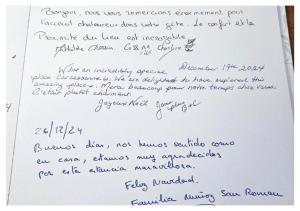 Bonjour, nous vous remercions énormément pour
l'accueil chaleureux dans votre gîte. Le confort et la
Proximité du lieu est incroyable
December 19th, 2024
What an incredibly special
place Carcassonne is. We are delighted to have explored this
amazing place. Merci beaucoup pour notre temps chez vous.
C'était charmant.
26/12/24
Buenos días, nos hemos sentido como
en casa, estamos muy agradecidos
por esta estancia maravillosa.
Feliz Navidad.
Familia Muñoz San Roman